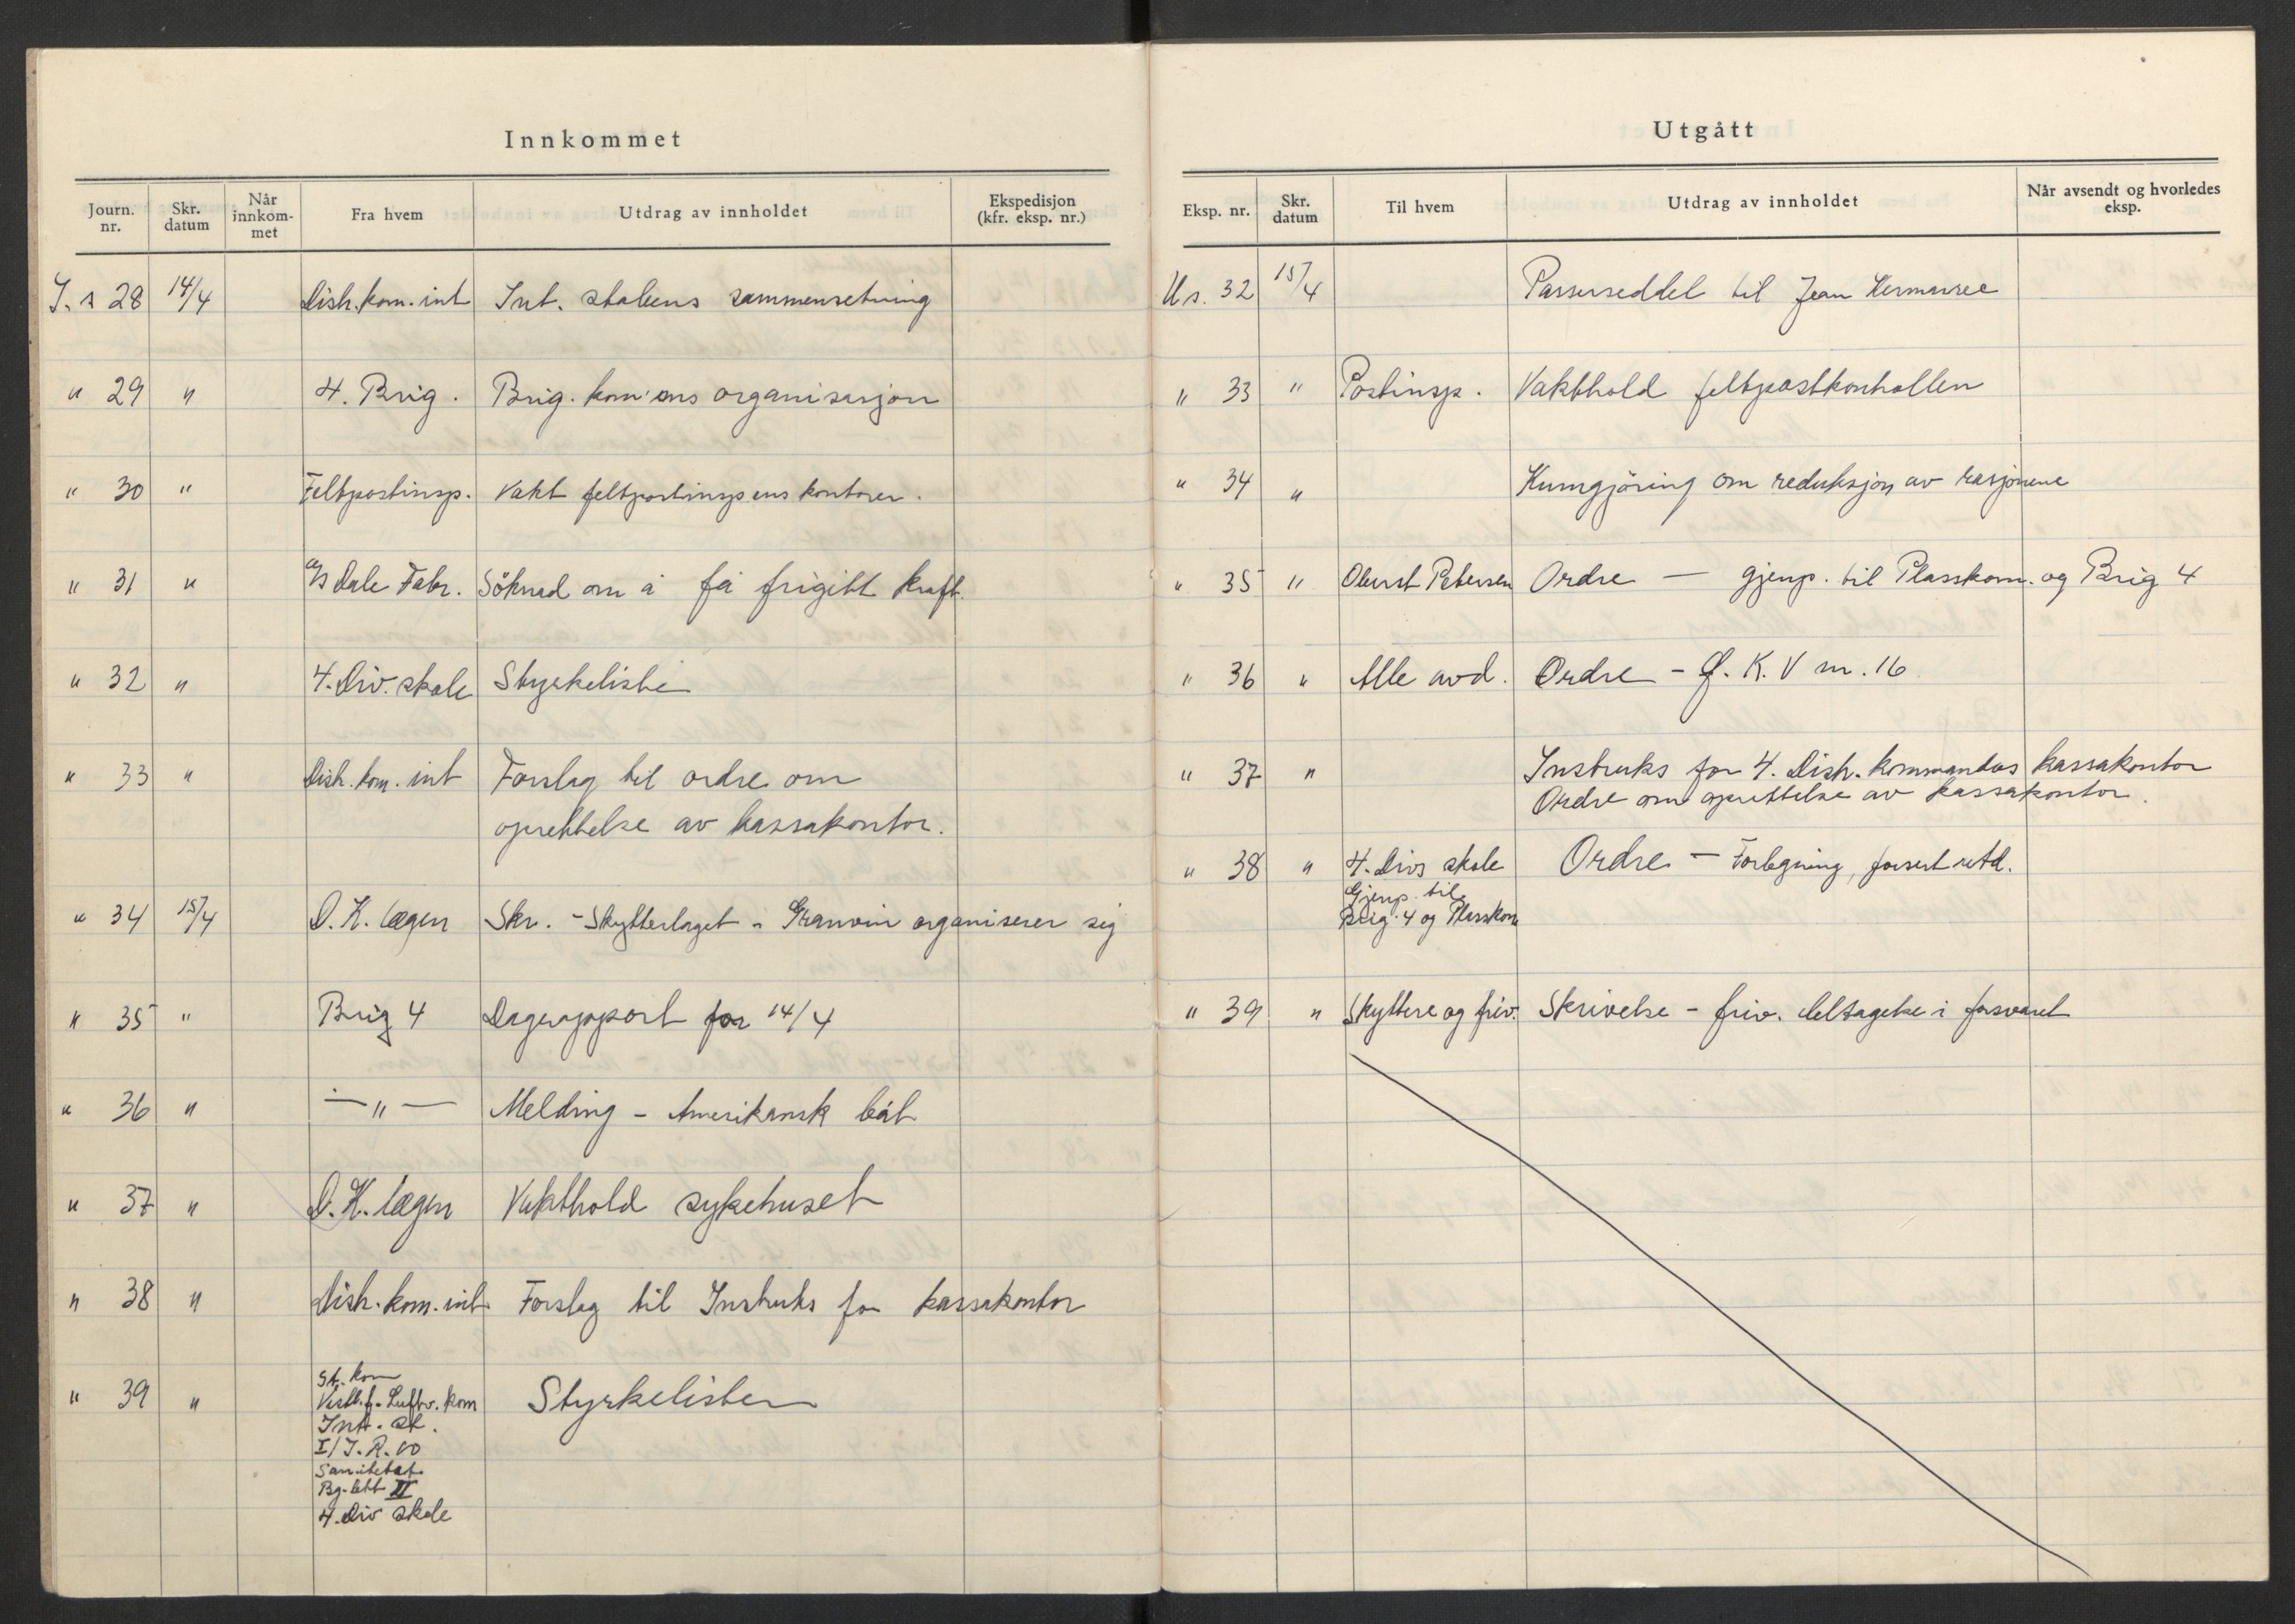 Innkommet
Journ. nr. Skr. datum Når innkom-met Fra hvem Utdrag av innholdet Ekspedisjon (kfr. eksp. nr.)
J. s 28 14/4 Distr. kom. int Int. stabens sammensetning
" 29 " 4. Brig. Brig. kom'ens organisasjon
" 30 " Feltpostinsp. Vakt feltpostinspens kontorer.
" 31 " A/S Dale Fabr. Söknad om å få frigitt kraft.
" 32 " 4. Div. skole Styrkeliste
" 33 " Distr. kom. int Forslag til ordre om
oprettelse av kassakontor.
" 34 15/4 D.K. lægen Skr. - Skytterlaget - Granvin organiserer sig
" 35 " Brig 4 Dagrapport for 14/4
" 36 " — " — Melding - Amerikansk båt
" 37 " D.K. lægen Vakthold sykehuset
" 38 " Distr. kom. int Forslag til Instruks for kassakontor
" 39 " St. kom Styrkelister
Vestl. f. Luftv. kom
Int. st.
I/I.R.10
Sanitetst.
Bg. lett II
4. Div skole
Utgått
Eksp. nr. Skr. datum Til hvem Utdrag av innholdet Når avsendt og hvorledes eksp.
U s. 32 15/4 Passerseddel til Jean
" 33 " Postinsp. Vakthold feltpostkontrollen
" 34 " Kunngjöring om reduksjon av rasjonene
" 35 " Oberst Petersen Ordre — gjenp. til Plasskom. og Brig 4
" 36 " Alle avd. Ordre - D.K. V nr. 16
" 37 " Instruks for 4. Distr. kommandos kassakontor
Ordre om oprettelse av kassakontor.
" 38 " 4. Divs skole Ordre — Forlegning, forsert utd.
Gjenp. til
Brig. 4 og Plasskom
" 39 " Skyttere og friv. Skrivelse - friv. deltagelse i forsvaret